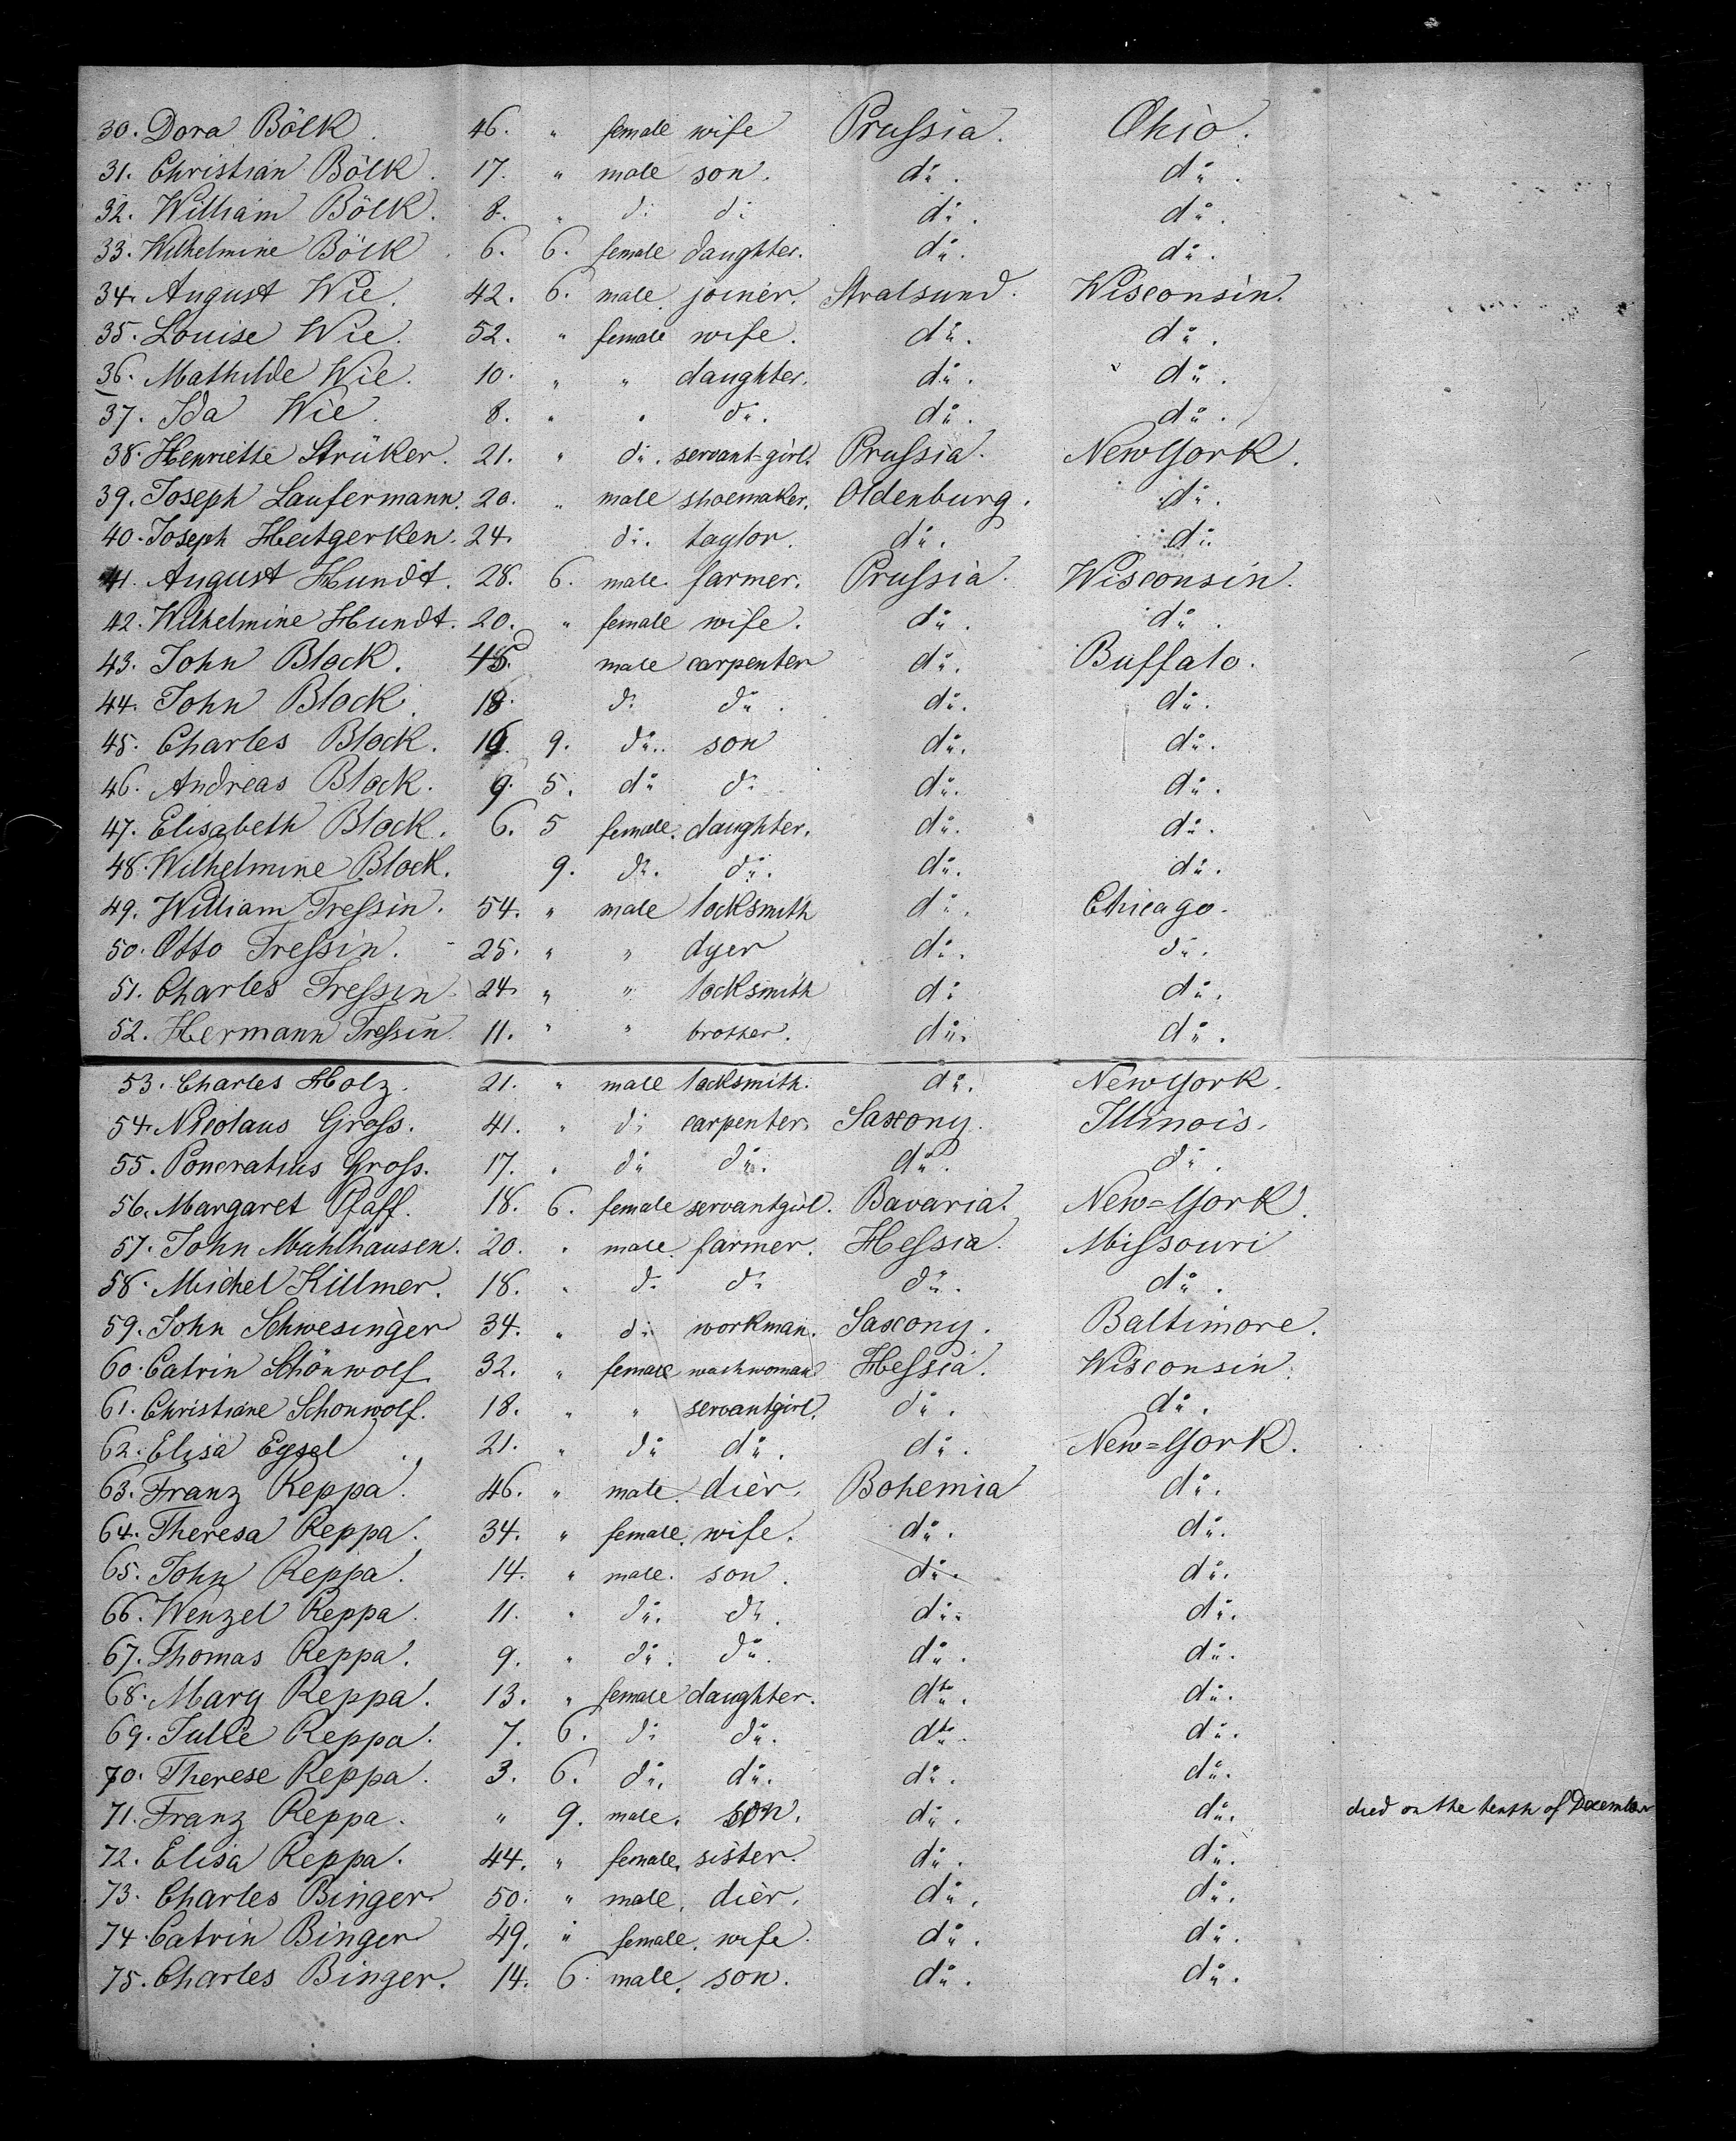 30. Dora Bölk. 46. " female wife Prussia. Ohio.
31. Christian Bölk. 17. " male son. do. do.
32. William Bölk. 8. " do do do. do.
33. Wilhelmine Bölk. 6. 6. female daughter. do. do.
34. August Wie. 42. 6. male joiner. Stralsund. Wisconsin.
35. Louise Wie. 52. " female wife. do. do.
36. Mathilde Wie. 10. " " daughter. do. do.
37. Ida Wie. 8. " " do. do. do.
38. Henriette Strüker. 21. " do. servant=girl. Prussia. New York.
39. Joseph Laufermann. 20. " male shoemaker. Oldenburg. do.
40. Joseph Heitgerken. 24. do. taylor. do. do.
41. August Hundt. 28. 6. male. farmer. Prussia. Wisconsin.
42. Wilhelmine Hundt. 20. " female wife. do. do.
43. John Block. 45. male carpenter do. Buffalo.
44. John Block. 18. do do. do. do.
45. Charles Block. 16. 9. do. son do. do.
46. Andreas Block. 9. 5. do do do. do.
47. Elisabeth Block. 6. 5 female. daughter. do. do.
48. Wilhelmine Block. 9. do. do. do. do.
49. William Tressin. 54. " male locksmith do. Chicago.
50. Otto Tressin. 25. " " dyer do. do.
51. Charles Tressin. 24. " " locksmith do do.
52. Hermann Tressin. 11. " " brother. do. do.
53. Charles Holz. 21. " male locksmith. do. New York.
54. Nicolaus Gross. 41. " do carpenter. Saxony. Illinois.
55. Poncratius Gross. 17. " do do. do. do.
56. Margaret Pfaff. 18. 6. female servantgirl. Bavaria. New=York.
57. John Muhlhausen. 20. " male. farmer. Hessia. Missouri
58. Michel Killmer. 18. " do do do. do.
59. John Schwesinger 34. " do workman. Saxony. Baltimore.
60. Catrin Schönwolf. 32. " female washwoman. Hessia. Wisconsin.
61. Christiane Schonwolf. 18. " " servantgirl. do. do.
62. Elisa Eysel 21. " do do. do. New=York.
63. Franz Reppa. 46. " male. dier. Bohemia do.
64. Theresa Reppa. 34. " female. wife. do. do.
65. John Reppa. 14. " male. son. do. do.
66. Wenzel Reppa. 11. " do. do. do. do.
67. Thomas Reppa. 9. " do. do. do. do.
68. Mary Reppa. 13. " female daughter. dto. do.
69. Julie Reppa. 7. 6. do do. dto. do.
70. Therese Reppa. 3. 6. do. do. do. do.
71. Franz Reppa. " 9. male. son. do. do. died on the tenth of December
72. Elisa Reppa. 44. " female. sister. do. do.
73. Charles Binger 50. " male. dier. do. do.
74. Catrin Binger 49. " female. wife. do. do.
75. Charles Binger. 14. 6. male. son. do. do.